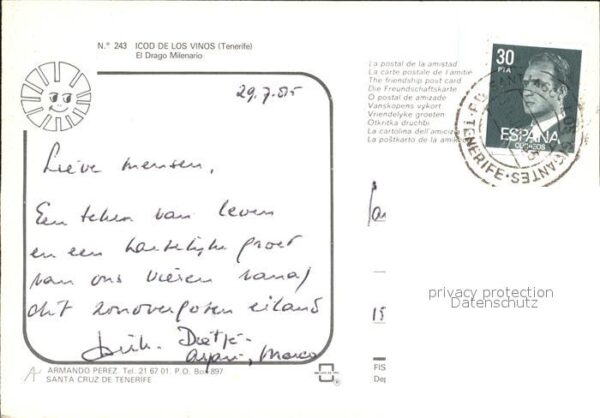 N.º 243 ICOD DE LOS VINOS (Tenerife)
El Drago Milenario
29.7.85
Lieve mensen,
Een teken van leven
en een hartelijke groet
van ons vieren vanaf
dit zonovergoten eiland
Dietje
Marco
ARMANDO PEREZ. Tel. 21 67 01. P. O. Box 897
SANTA CRUZ DE TENERIFE
La postal de la amistad
La carte postale de l'amitié
The friendship post card
Die Freundschaftskarte
O postal de amizade
Vanskopens vykort
Vriendelyke groeten
Otkritka druchbi
La cartolina dell'amici
La poštkarto de la amik
30
PTA
ESPAÑA
CORREOS
TENERIFE
15
FIS
Dep
privacy protection
Datenschutz